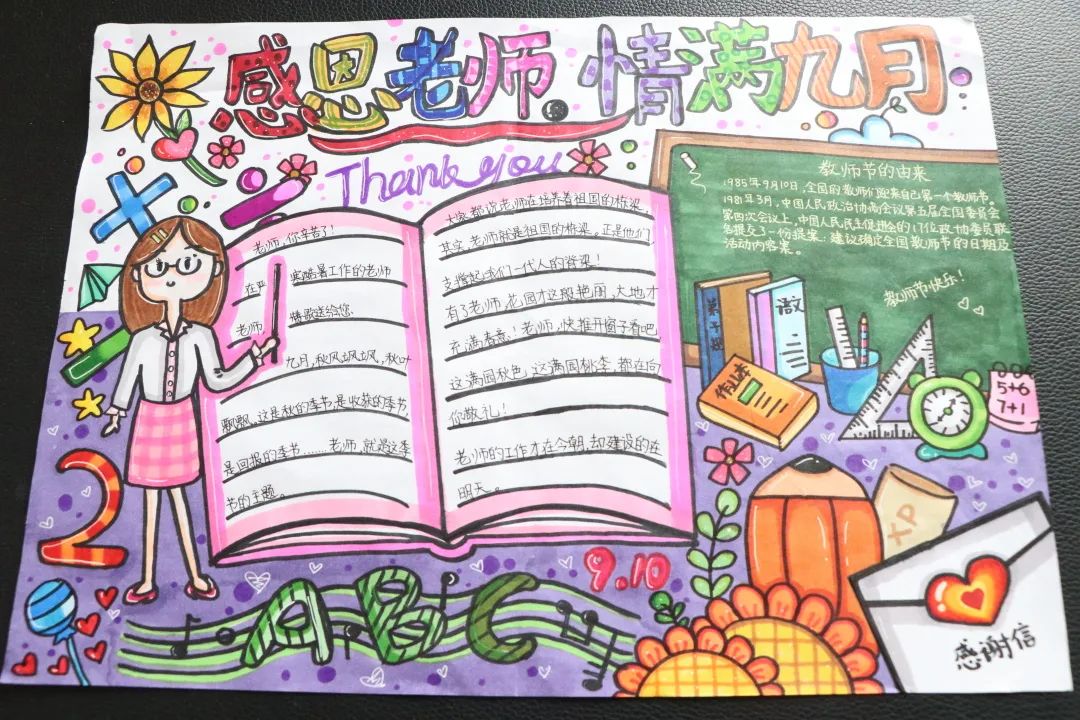 感恩老师 情满九月
Thank you
老师,你辛苦了!
在严寒酷暑工作的老师
老师 情歌送给您.
九月,秋风飒飒,秋叶
飘飘,这是秋的季节,是收获的季节,
是回报的季节……老师,就是这季
节的主题。
大家都说老师在培养着祖国的栋梁,
其实,老师就是祖国的栋梁。正是他们,
支撑起我们一代人的脊梁!
有了老师,花园才这般艳丽,大地才
充满春意!老师,快推开窗子看吧,
这满园秋色,这满园桃李,都在向
你敬礼!
老师的工作才在今朝,却建设的在
明天。
教师节的由来
1985年9月10日,全国的教师们迎来自己第一个教师节。
1981年3月,中国人民政治协商会议第五届全国委员会
第四次会议上,中国人民民主促进会的17位政协委员联
名提交了一份提案:建议确定全国教师节的日期及
活动内容案。
教师节快乐!
弟子规
语文
二
作业本
5+6
7+1
2
XP
9.10
ABC
感谢信